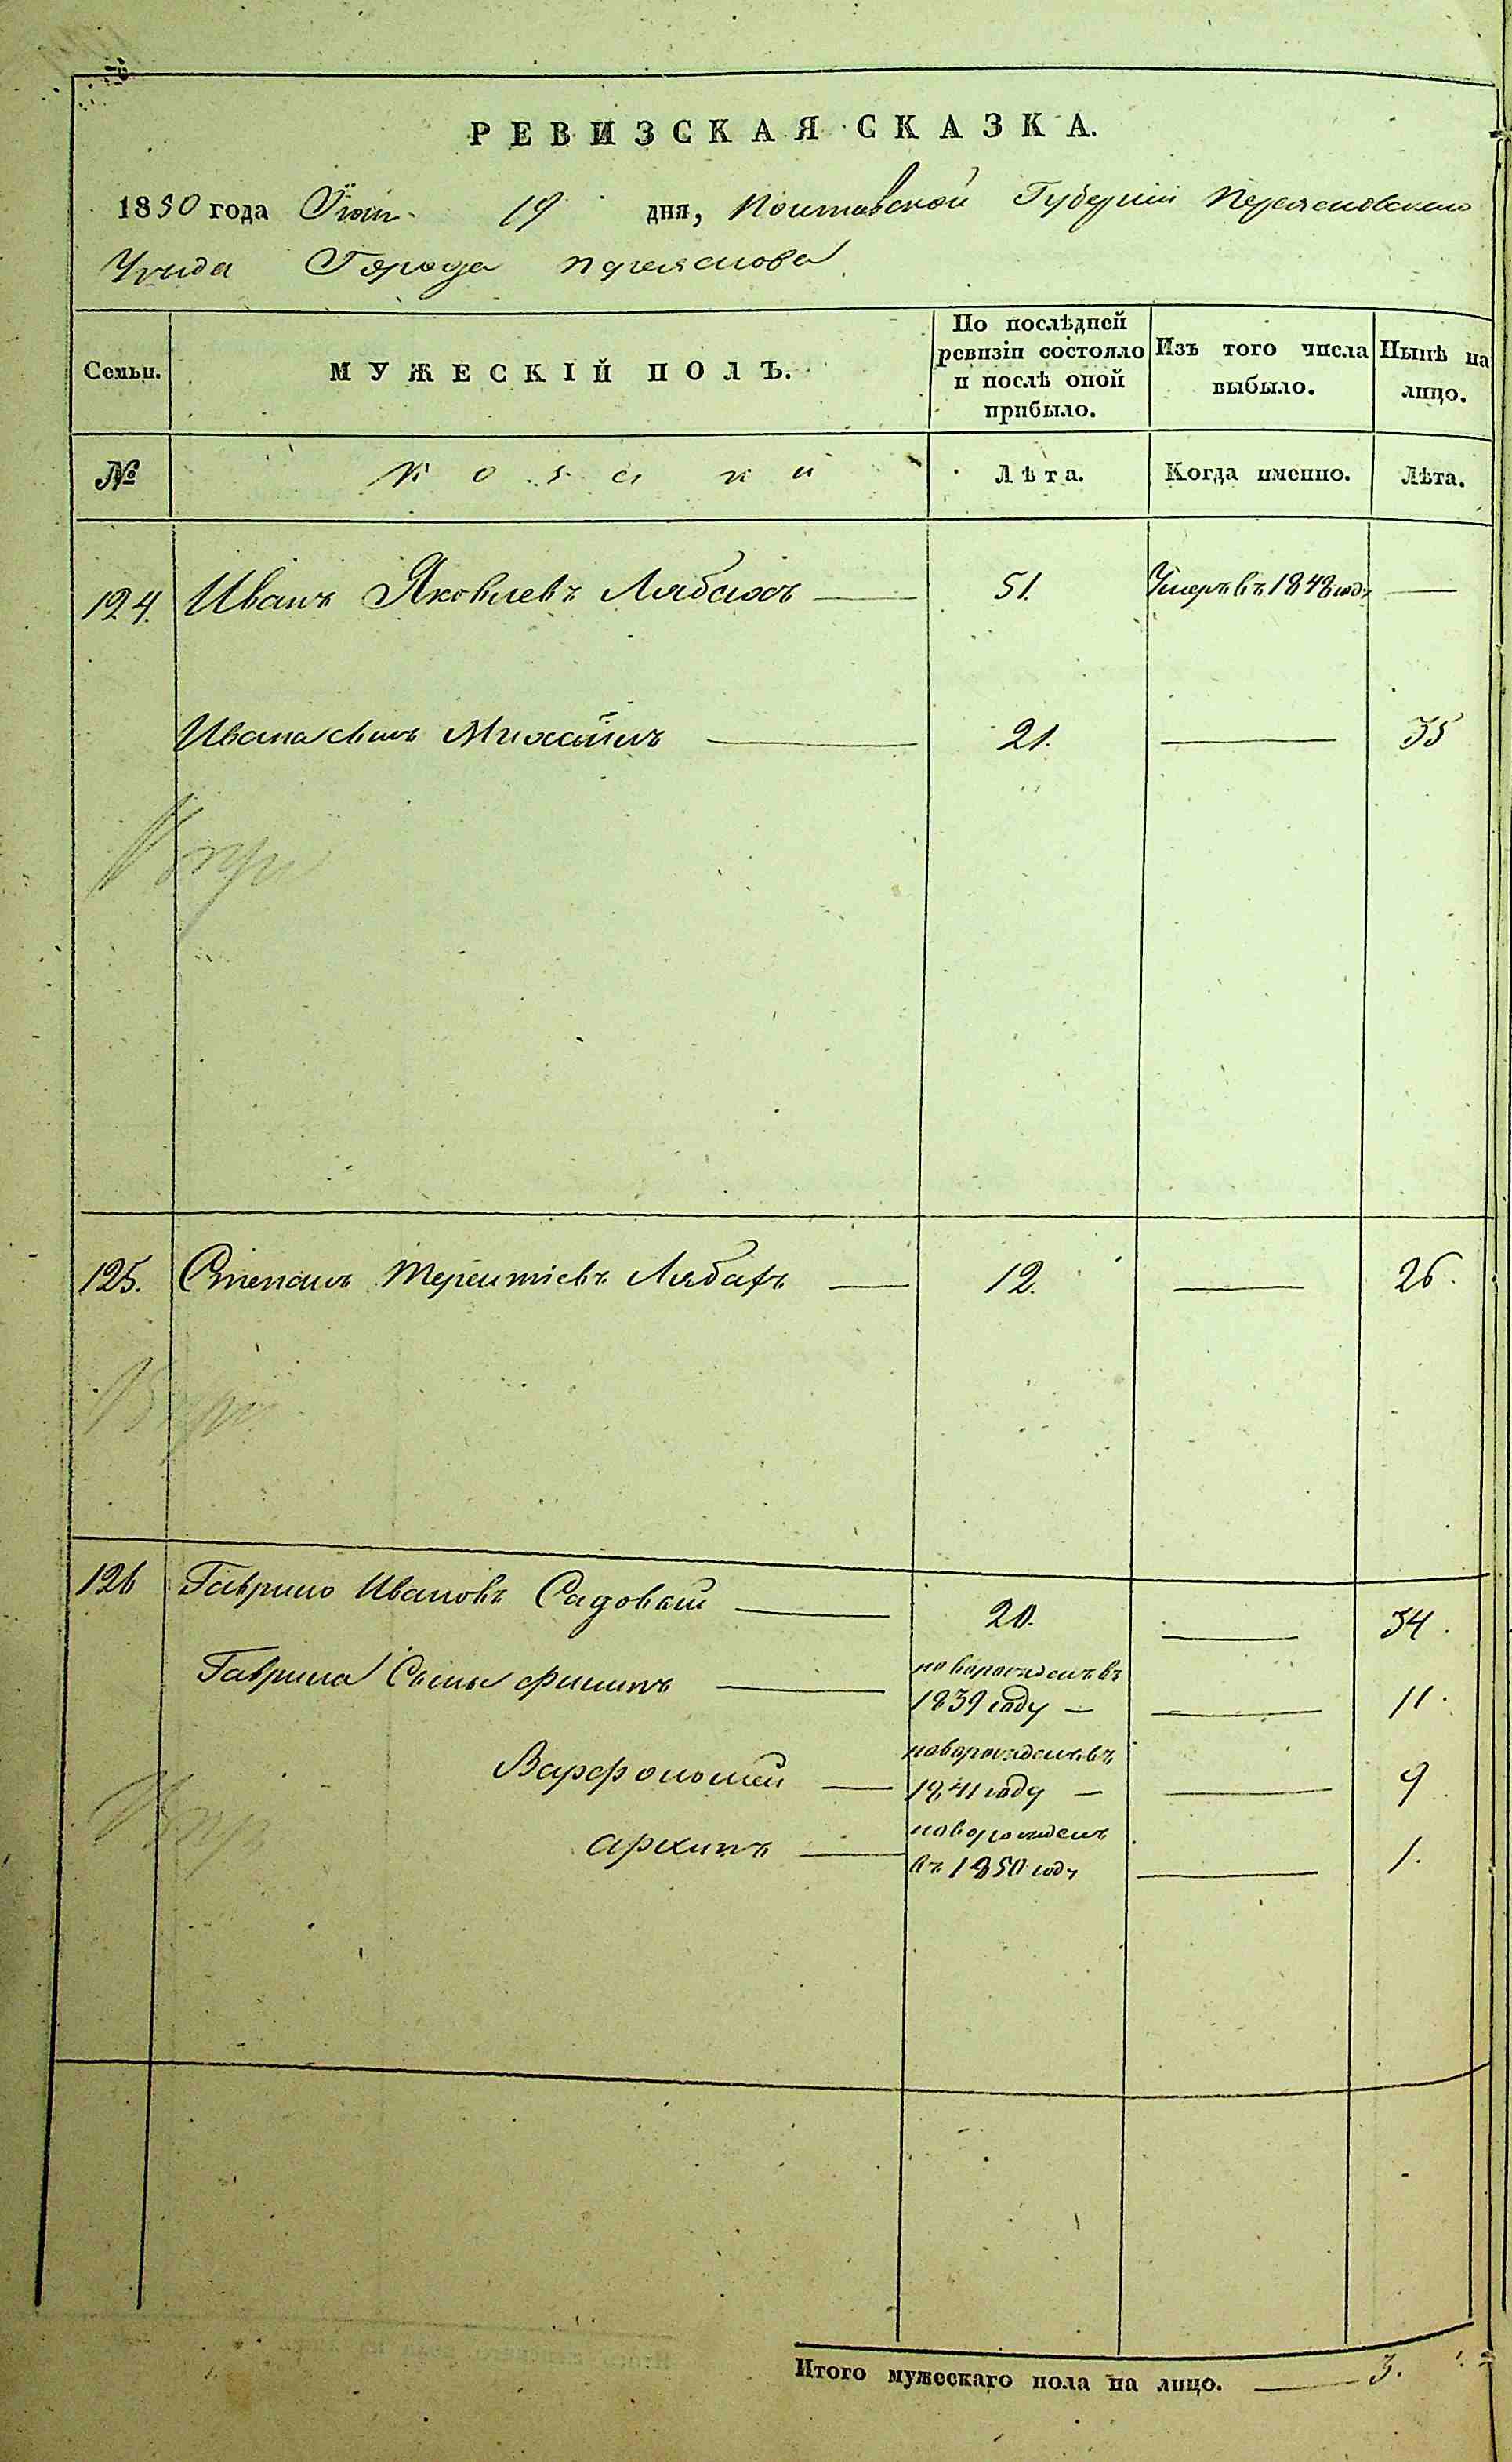 РЕВИЗСКАЯ СКАЗКА.
1850 года Іюня 19 дня, Полтавской Губерніи Переясловскаго
Уезда Города Переяслова
Семьи.
МУЖЕСКІЙ ПОЛЪ.
По послѣдней ревизіи состояло и послѣ оной прибыло.
Изъ того числа выбыло.
Нынѣ на лицо.
№
Козаки
Лѣта.
Когда именно.
Лѣта.
124. Иванъ Яковлевъ 51. Умеръ въ 1848 годе —
Ивана сынъ Михаилъ 21. — 35
125. Степанъ Терентіевъ 12. — 26.
126 Гаврило Ивановъ Садовый 20. — 34.
Гаврила Сыны Филипъ новорожденъ въ 1839 году — 11.
Варфоломей новорожденъ въ 1841 году — 9
Архипъ новорожденъ въ 1850 году — 1.
Итого мужескаго пола на лицо. — 3.